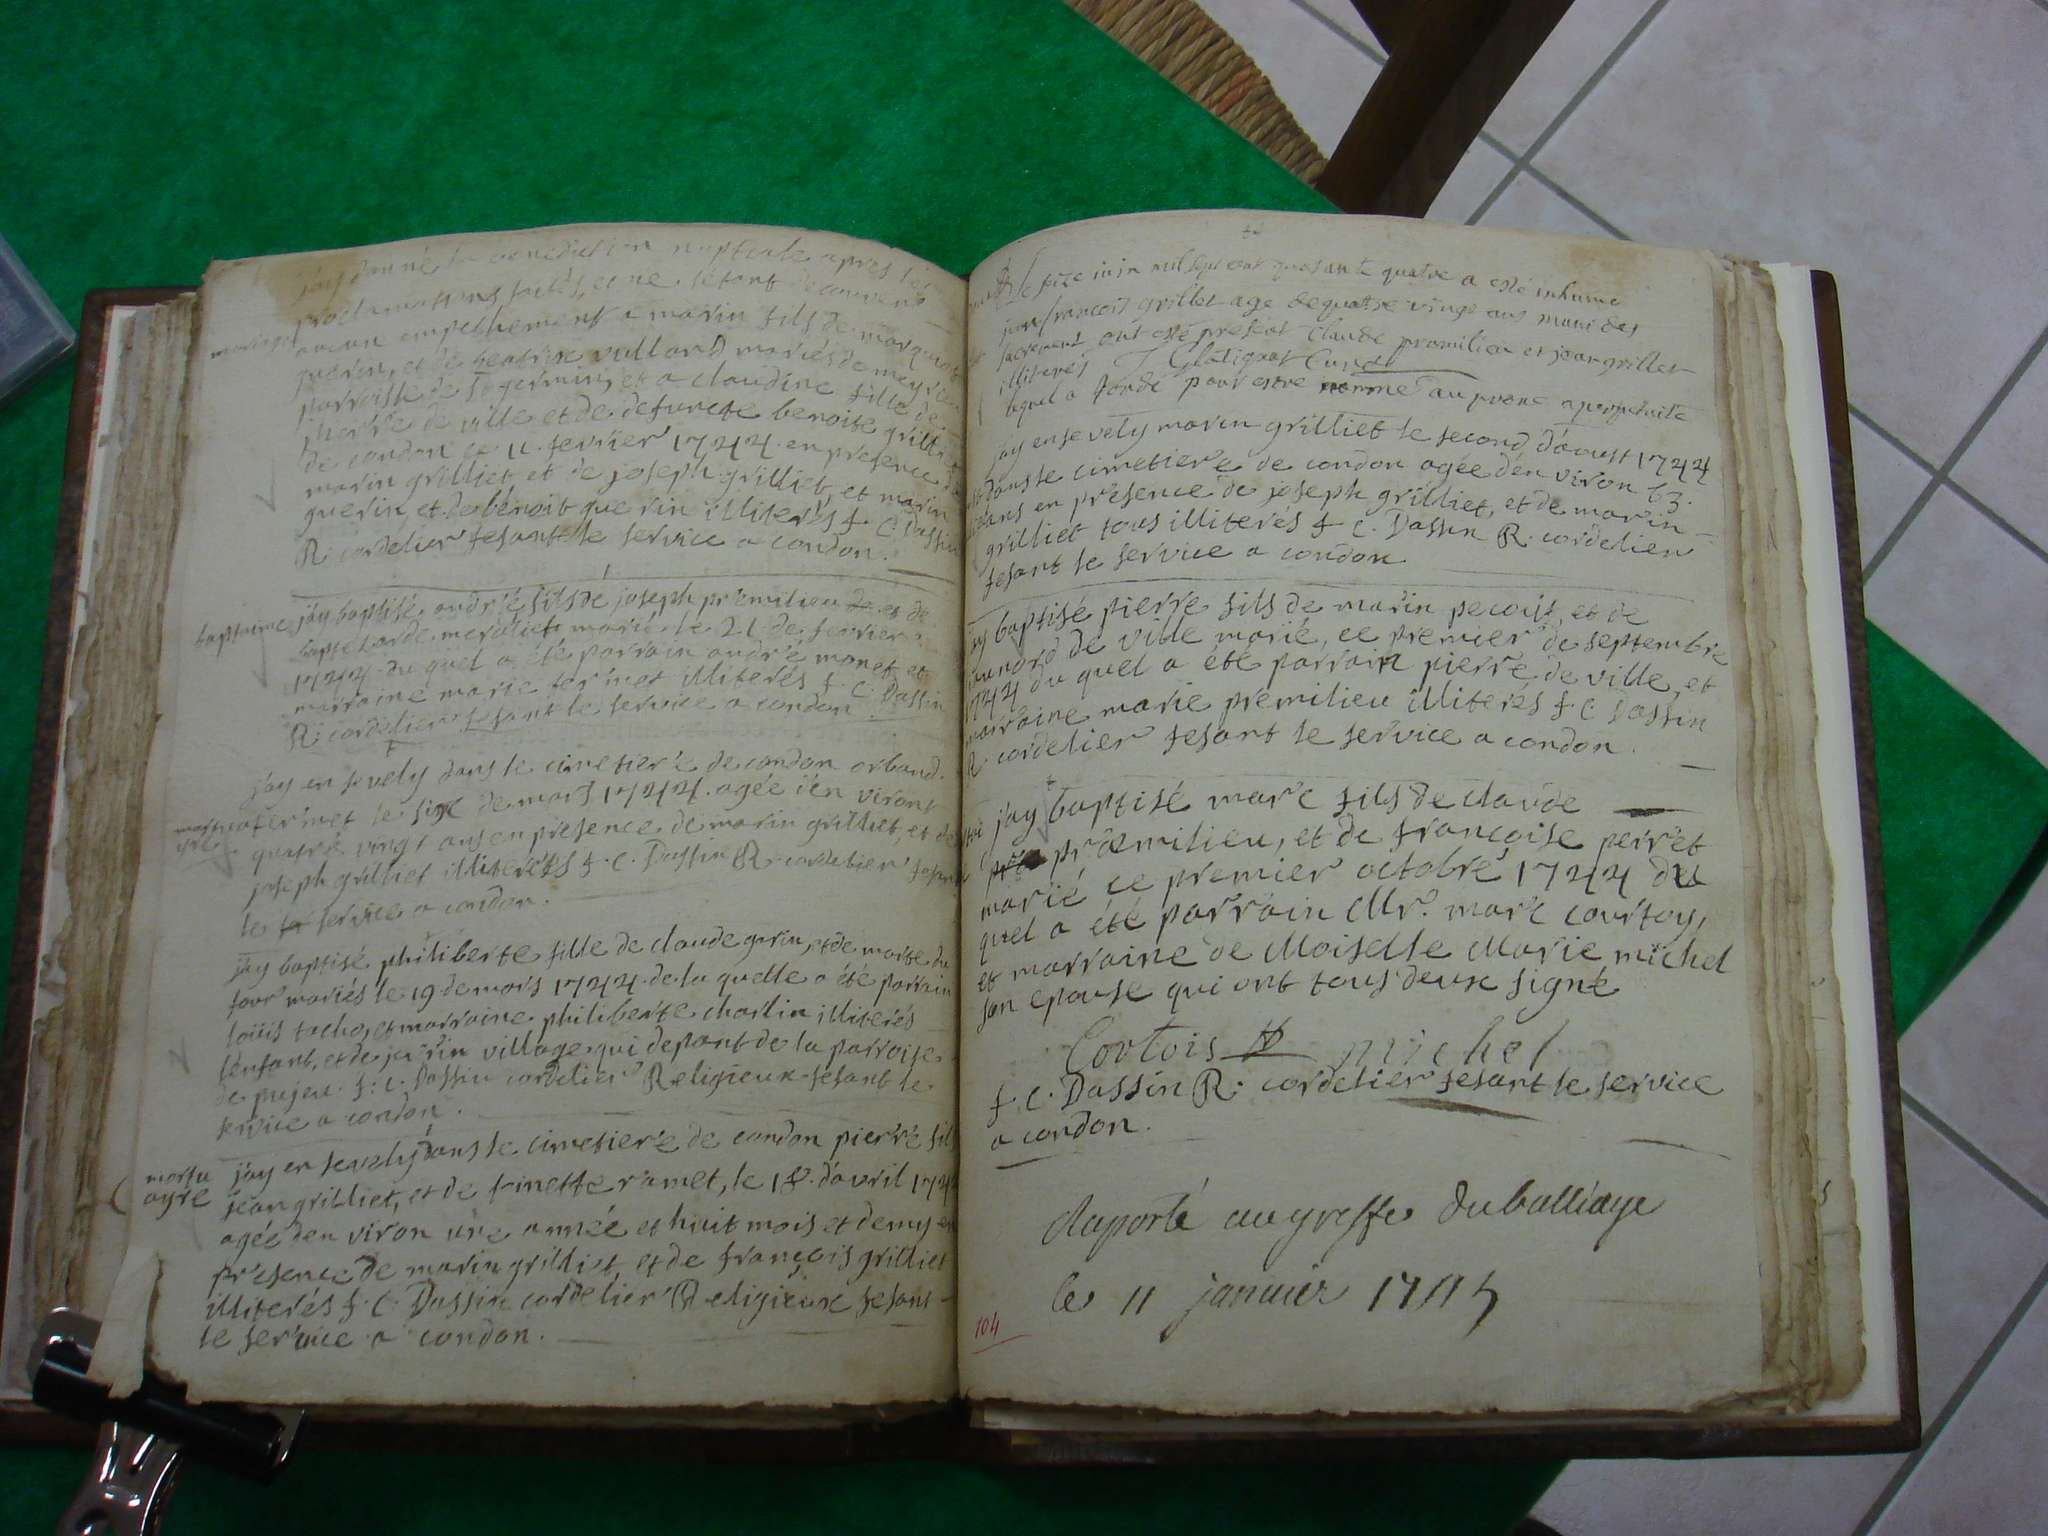 jay donné la benediction nuptiale apres les
proclamations faites, et ne setant decouvert
mariage
aucun empechement a marin fils de marquiot
guerin, et de beatrise vullard mariés de meyrie
parroisse de St germin, et a claudine fille de
pherre de ville et de defuncte benoite grilliet
de condon ce 11. fevrier 1744. en presence de
marin grilliet, et de joseph grilliet, et marin
guerin, et de benoit guerin illiterés f. C. Dassin
R. cordelier fesant le service a condon.
baptaime jay baptisé andré fils de joseph premilieu de et de
merdliet marié le 21 de fevrier
1744. du quel a été parrain andré monet et
marraine marie fermet illiterés f. C. Dassin
R. cordelier fesant le service a condon
jay en sevely dans le cimetiere de condon orband
mortu ayre
fermet le six de mars 1744. agée d'en viront
quatre vingt ans en presence de marin grilliet, et de
joseph grilliet illiterés f. C. Dassin R. cordelier fesant
le service a condon.
jay baptisé philiberte fille de claude gorin, et de marte du
four mariés le 19 de mars 1744. de la quelle a été parrain
loüis tacho, et marraine philiberte charlin illiterés
lenfant, et de village qui depant de la parroise
de pujeu. f. C. Dassin cordelier Religieux fesant le
service a condon.
mortu ayre
jay en sevely dans le cimetiere de condon pierre fils
jean grilliet, et de finette ramet, le 18. d'avril 1744
agée den viron une année et huit mois et demy en
presence de marin grilliet, et de françois grilliet
illiterés f. C. Dassin cordelier Religieux fesant
le service a condon.
Le seize juin mil sept cent quarante quatre a esté inhumé
jean francois grillet age de quatre vingt ans muni des
sacrement ont esté present Claude promilieu et jean grillet
illiterés Glatignat Curé
lequel a fondé pour estre nommé au prone a perpetuité
jay ensevely marin grilliet le second d'aoust 1744
dans le cimetiere de condon agée d'en viron 63.
ans en presence de joseph grilliet, et de marin
grilliet tous illiterés f. C. Dassin R. cordelier
fesant le service a condon
jay baptisé pierre fils de marin pecoüt, et de
de ville marié, ce premier de septembre
1744 du quel a été parrain pierre de ville, et
marraine marie premilieu illiterés f. C. Dassin
R. cordelier fesant le service a condon.
jay baptisé marc fils de claude
præmilieu, et de françoise perret
marié ce premier octobre 1744 du
quel a été parrain Mr. marc courtoy,
et marraine de Moiselle Marie michel
son epouse qui ont tous deux signé
Cortois michel
f. C. Dassin R. cordelier fesant le service
a condon.
Raporté au greffe du balliage
le 11 janvier 1745
104